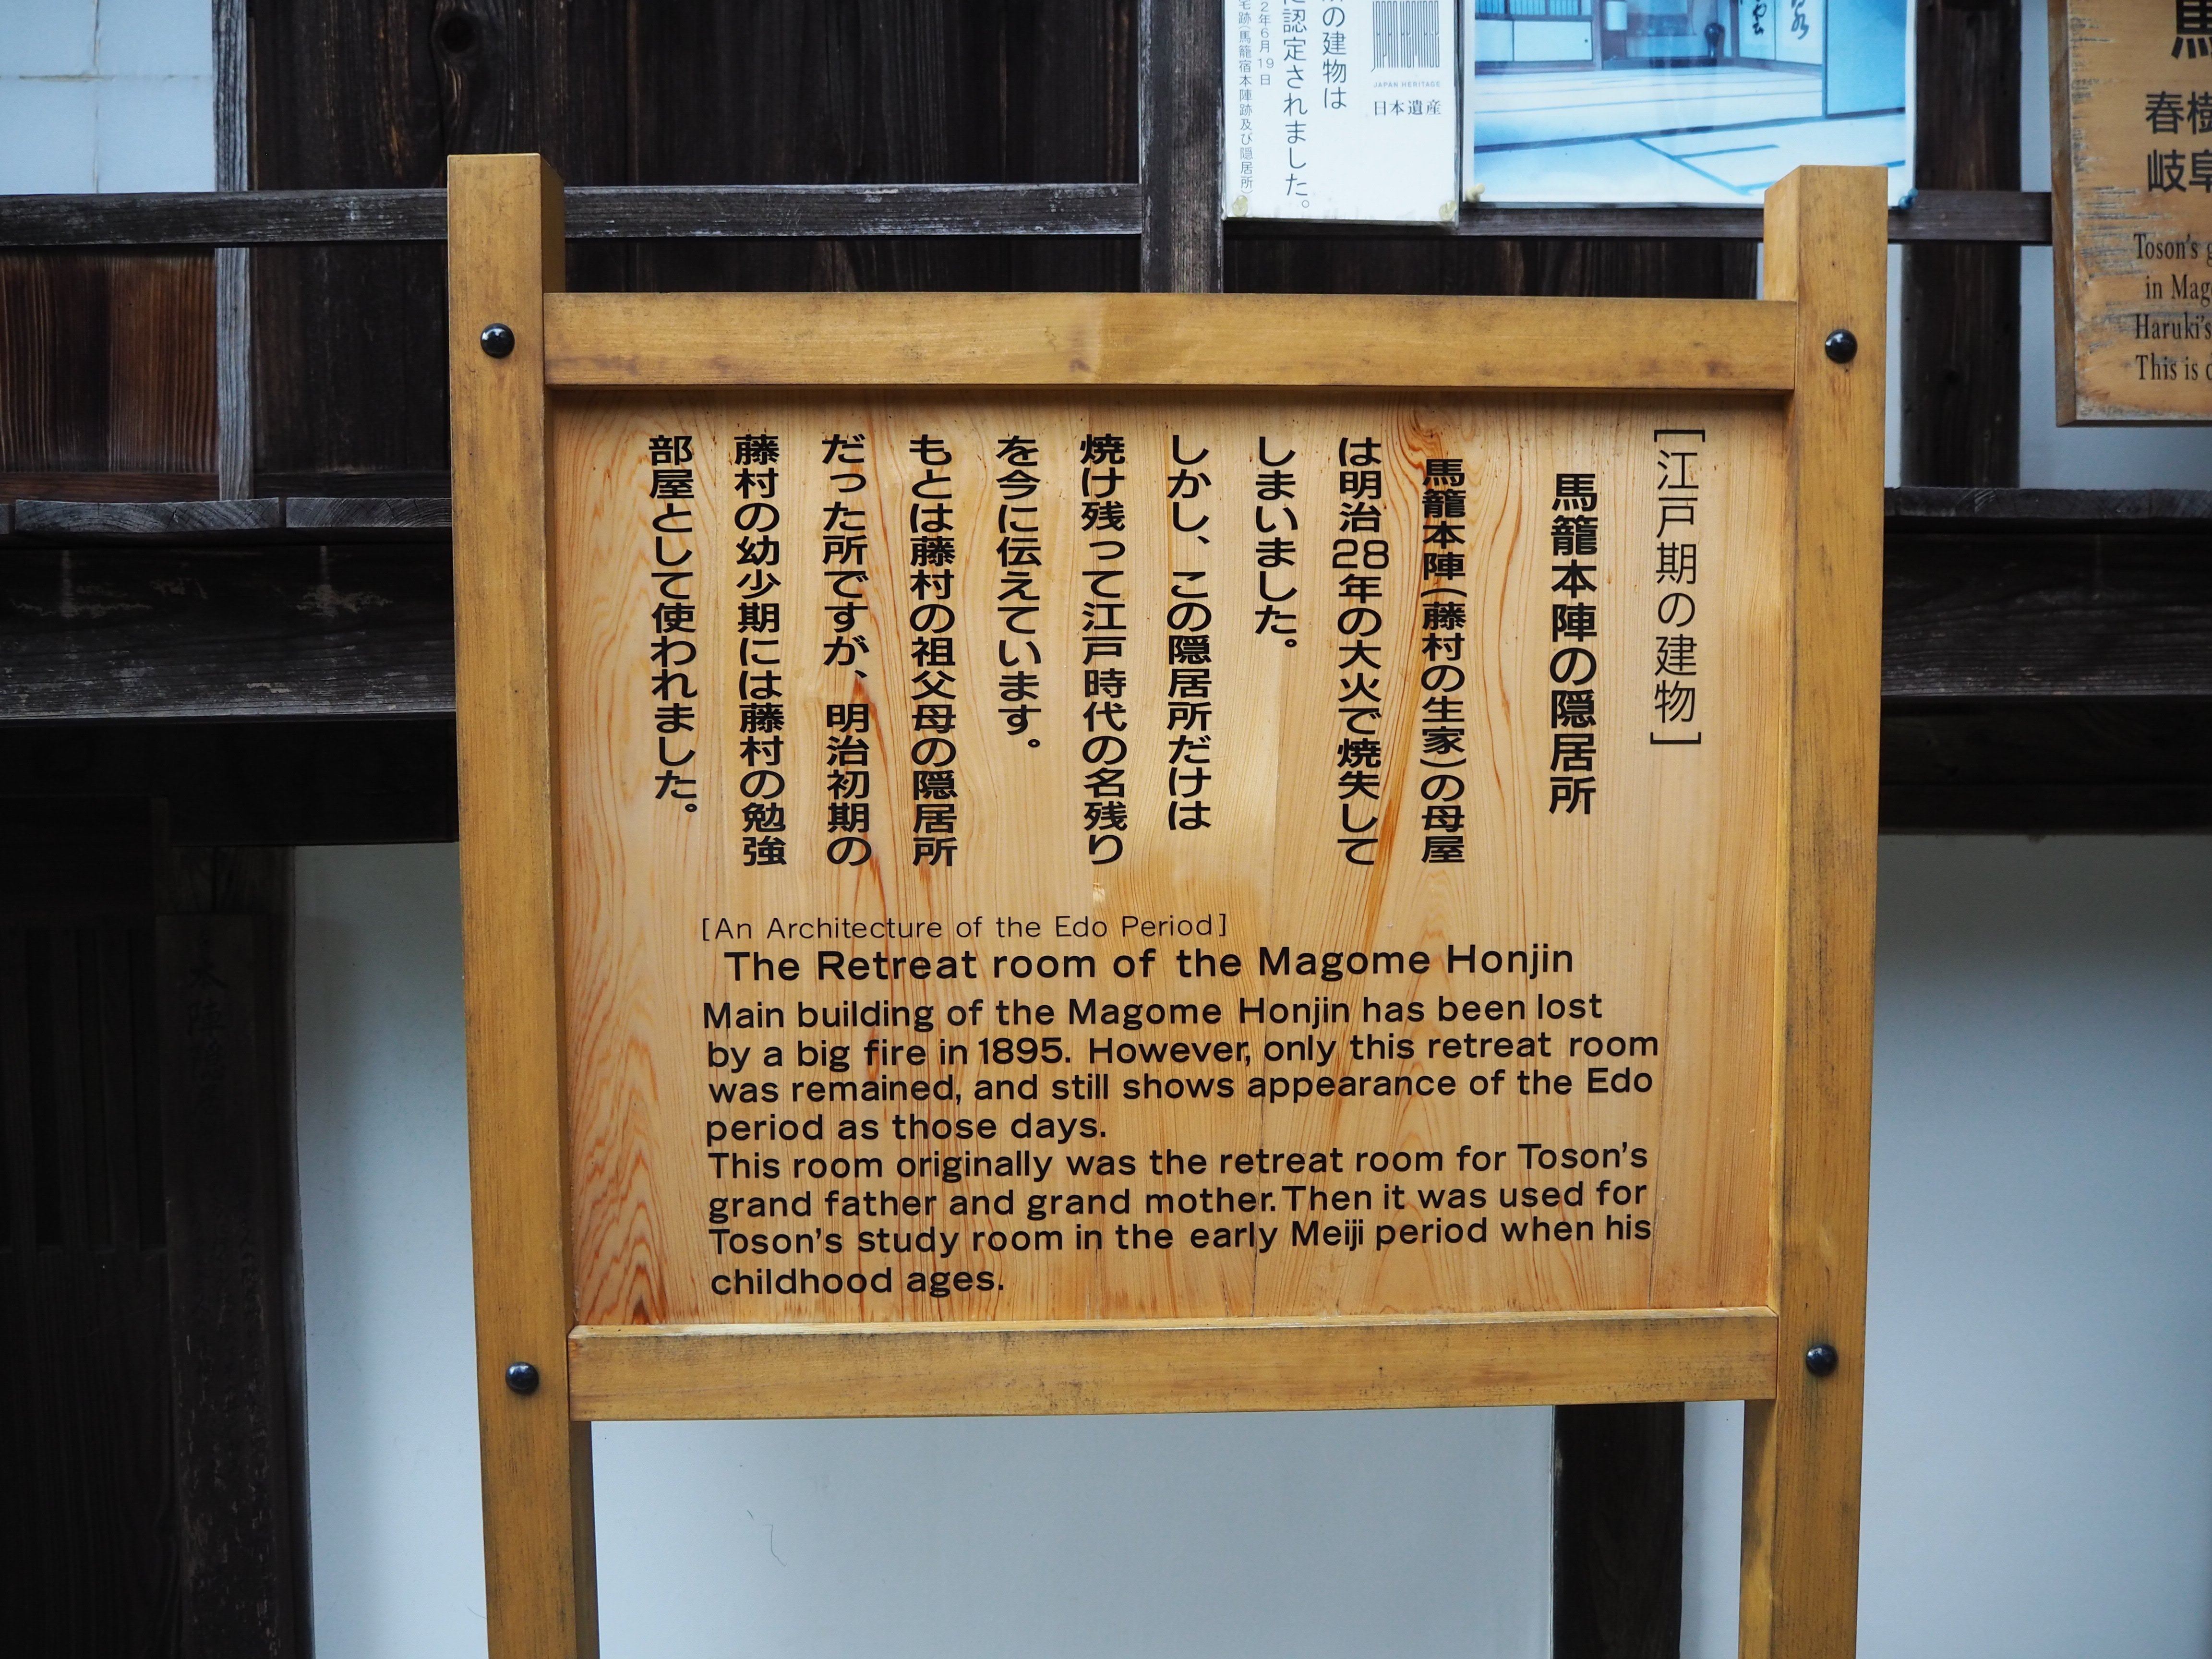 の建物は
認定されました。
2年6月19日
宅跡(馬籠宿本陣跡及び隠居所)
JAPAN HERITAGE
日本遺産
馬
春樹
岐阜
Toson's
in
Haruki's
This is
[江戸期の建物]
馬籠本陣の隠居所
馬籠本陣(藤村の生家)の母屋
は明治28年の大火で焼失して
しまいました。
しかし、この隠居所だけは
焼け残って江戸時代の名残り
を今に伝えています。
もとは藤村の祖父母の隠居所
だった所ですが、明治初期の
藤村の幼少期には藤村の勉強
部屋として使われました。
[An Architecture of the Edo Period]
The Retreat room of the Magome Honjin
Main building of the Magome Honjin has been lost
by a big fire in 1895. However, only this retreat room
was remained, and still shows appearance of the Edo
period as those days.
This room originally was the retreat room for Toson's
grand father and grand mother. Then it was used for
Toson's study room in the early Meiji period when his
childhood ages.